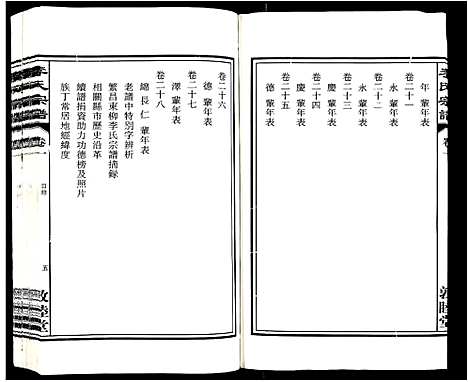 李氏宗譜
卷一
敦睦堂
年輩年表
卷二十一
永輩年表
卷二十二
永輩年表
卷二十三
慶輩年表
卷二十四
慶輩年表
卷二十五
德輩年表
卷二十六
德輩年表
卷二十七
澤輩年表
卷二十八
綿長仁輩年表
老譜中特別字辨析
繁昌東柳李氏宗譜摘録
相關縣市歷史沿革
續譜捐資助力功德榜及照片
族丁常居地經緯度
李氏宗譜
卷一
目録
五
敦睦堂